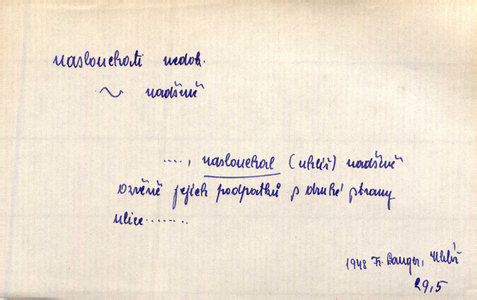 naslouchati nedok.
~ nadšeně
...., naslouchal (uhlíř) nadšeně
ozvěně jejich podpatků s druhé strany
ulice.......
1948 Fr. Langer,
29,5